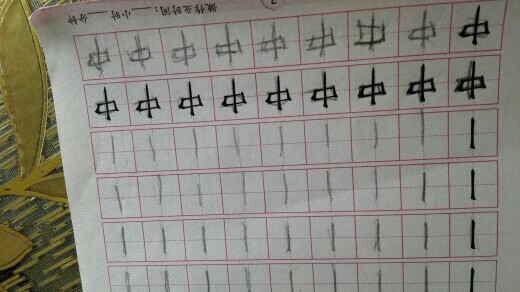 丨丨丨丨丨丨丨丨丨
丨丨丨丨丨丨丨丨丨
丨丨丨丨丨丨丨丨丨
丨丨丨丨丨丨丨丨丨
中中中中中中中中中
中中中中中中中中中
做作业时间：___小时___分钟